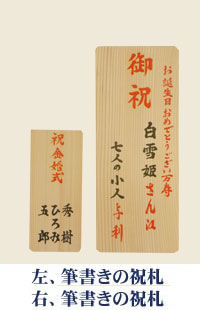 お誕生日おめでとうござい万寿
御祝
白雪姫さん江
七人の小人与利
祝金婚式
秀樹
ひろみ
五郎
左、筆書きの祝札
右、筆書きの祝札